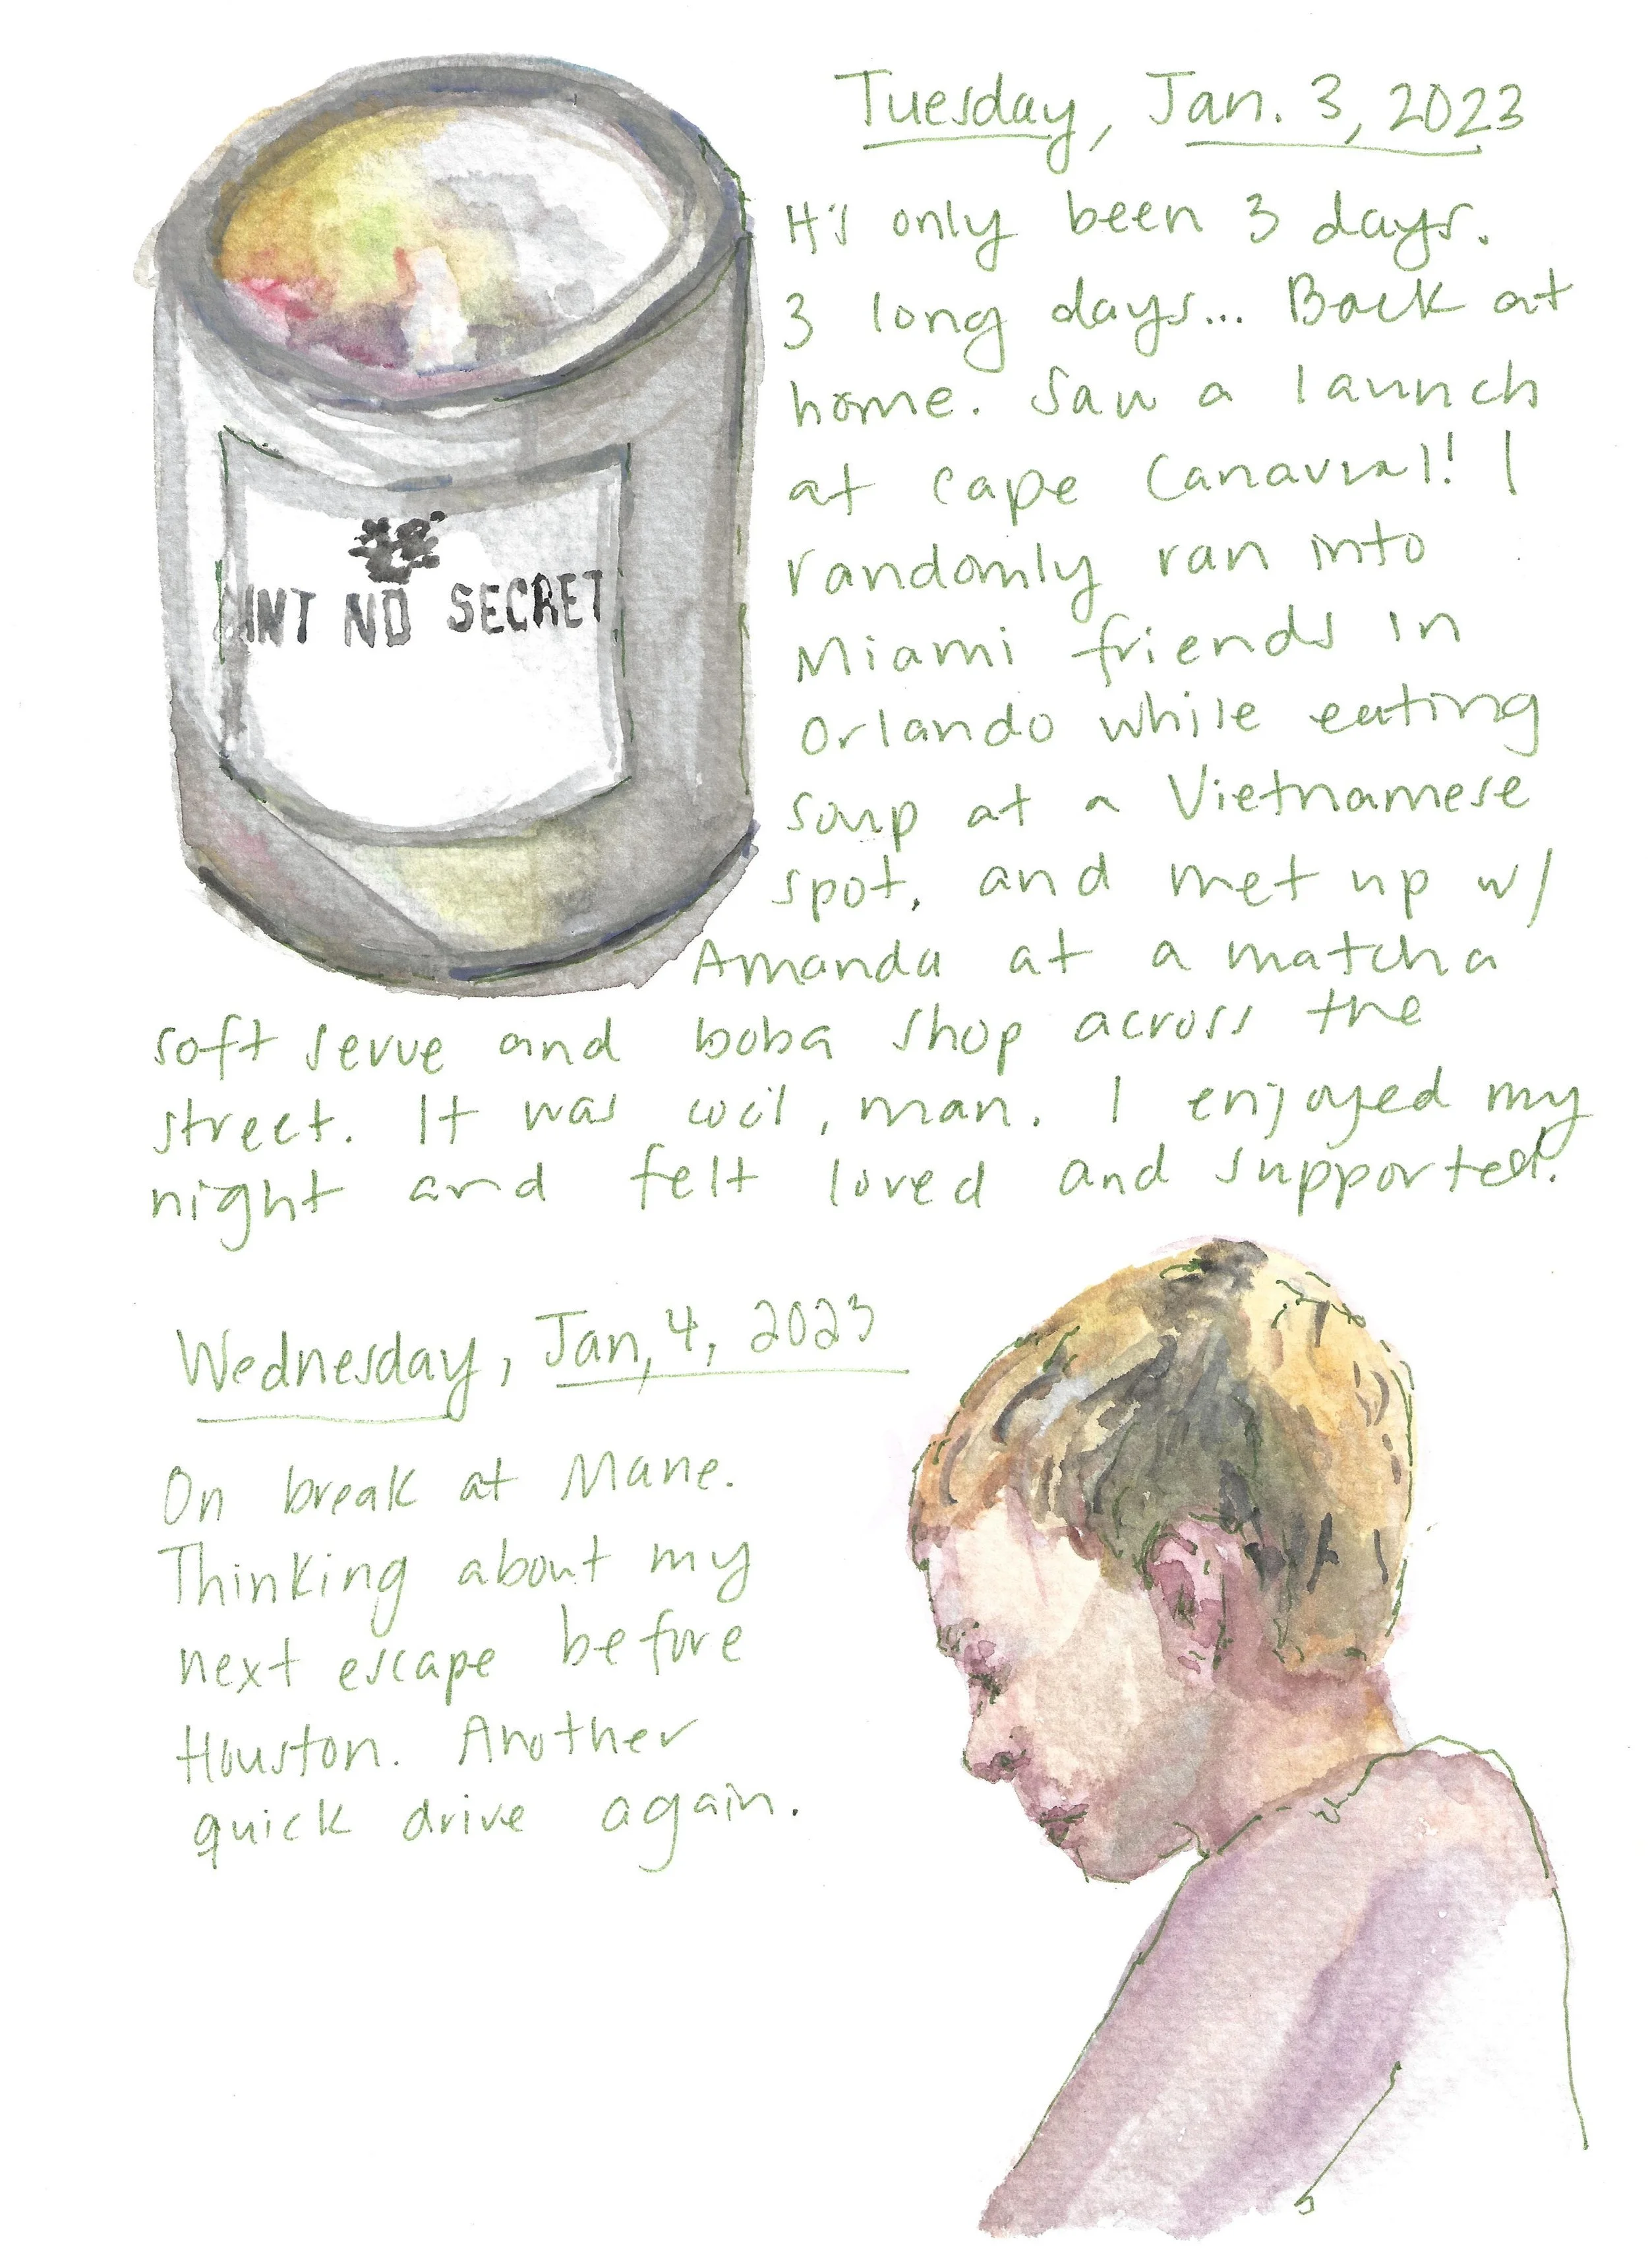 Tuesday, Jan. 3, 2023
It's only been 3 days.
3 long days... Back at
home. Saw a launch
at Cape Canaveral! I
randomly ran into
Miami friends in
Orlando while eating
soup at a Vietnamese
spot. and met up w/
Amanda at a matcha
soft serve and boba shop across the
street. It was cool, man. I enjoyed my
night and felt loved and supported.
AINT NO SECRET
Wednesday, Jan, 4, 2023
On break at Mane.
Thinking about my
next escape before
Houston. Another
quick drive again.